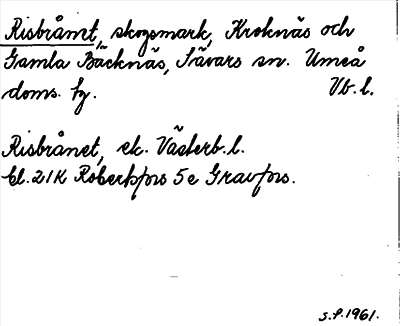 Risbrånet, skogsmark, Kroknäs och
Gamla Bäcknäs, Sävars sn. Umeå
doms. hg. Vb. l.
Risbrånet, ek. Västerb. l.
bl. 21K Robertsfors 5e Gravfors.
s.f. 1961.